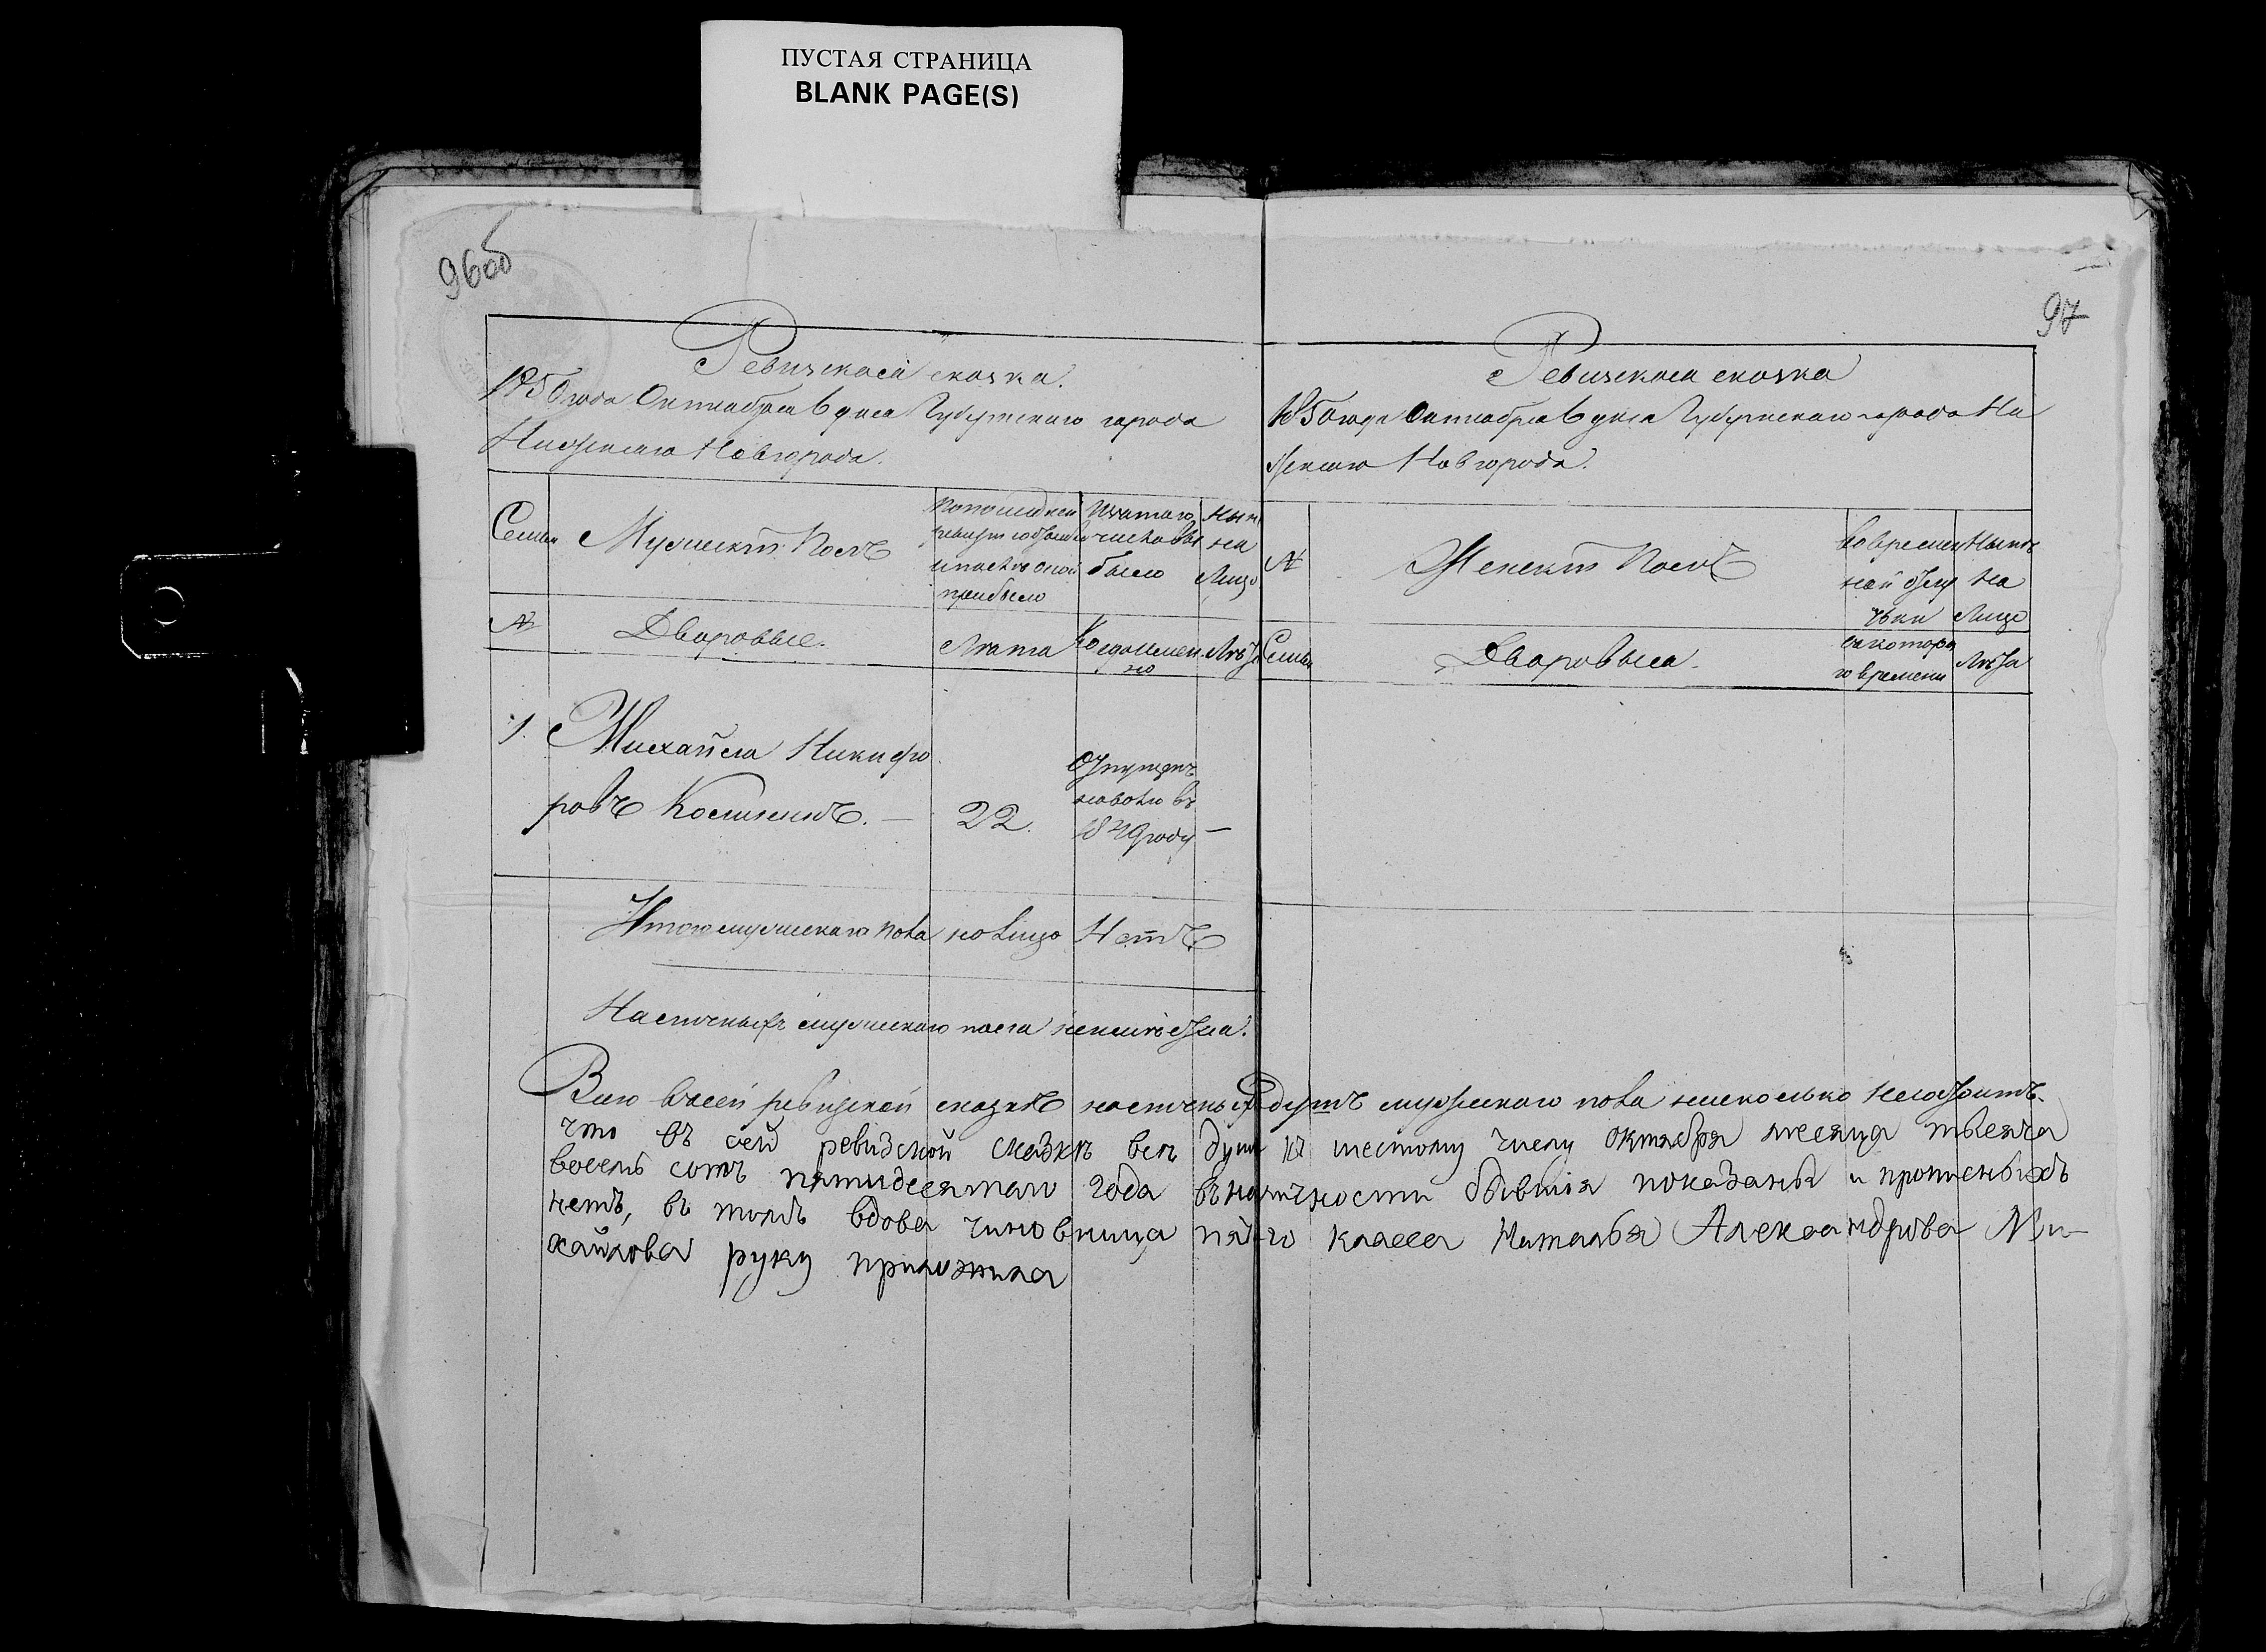 ПУСТАЯ СТРАНИЦА
BLANK PAGE(S)
96об
97
Ревизская сказка.
1850 года Октября 6 дня Губернскаго города
Нижняго Новгорода.
Семьи
Мужеский Полъ
По последней
ревизии состояло
и после оной
прибыло
Изъ того
числа вы
было
Ныне
на
Лицо
№
Дворовые.
Лета
Когда имен
но
Лета
1.
Михайла Никифо
ровъ Костинъ. —
22.
Отпущенъ
наволю въ
1849 году
—
Итого мужескаго пола на лицо Нетъ
Наличныхъ мужескаго пола неимеется.
Ревизская сказка
1850 года Октября 6 дня Губернскаго города Ни
жняго Новгорода.
№
Женский Полъ
Во времен
ной отлу
чки
Ныне
на
Лицо
Семьи
Дворовыя.
Съ которо
го времени
Лета
Всего в сей ревизской сказке наличныхъ душъ мужескаго пола нисколько несостоитъ.
что въ сей ревизской сказкѣ все души къ шестому числу октября месяца тысяча
восемь сотъ пятидесятаго года въ наличности бывшія показаны и прописныхъ
нетъ, въ томъ вдова чиновница пят-го класса Наталья Александрова Ми-
хайлова руку приложила